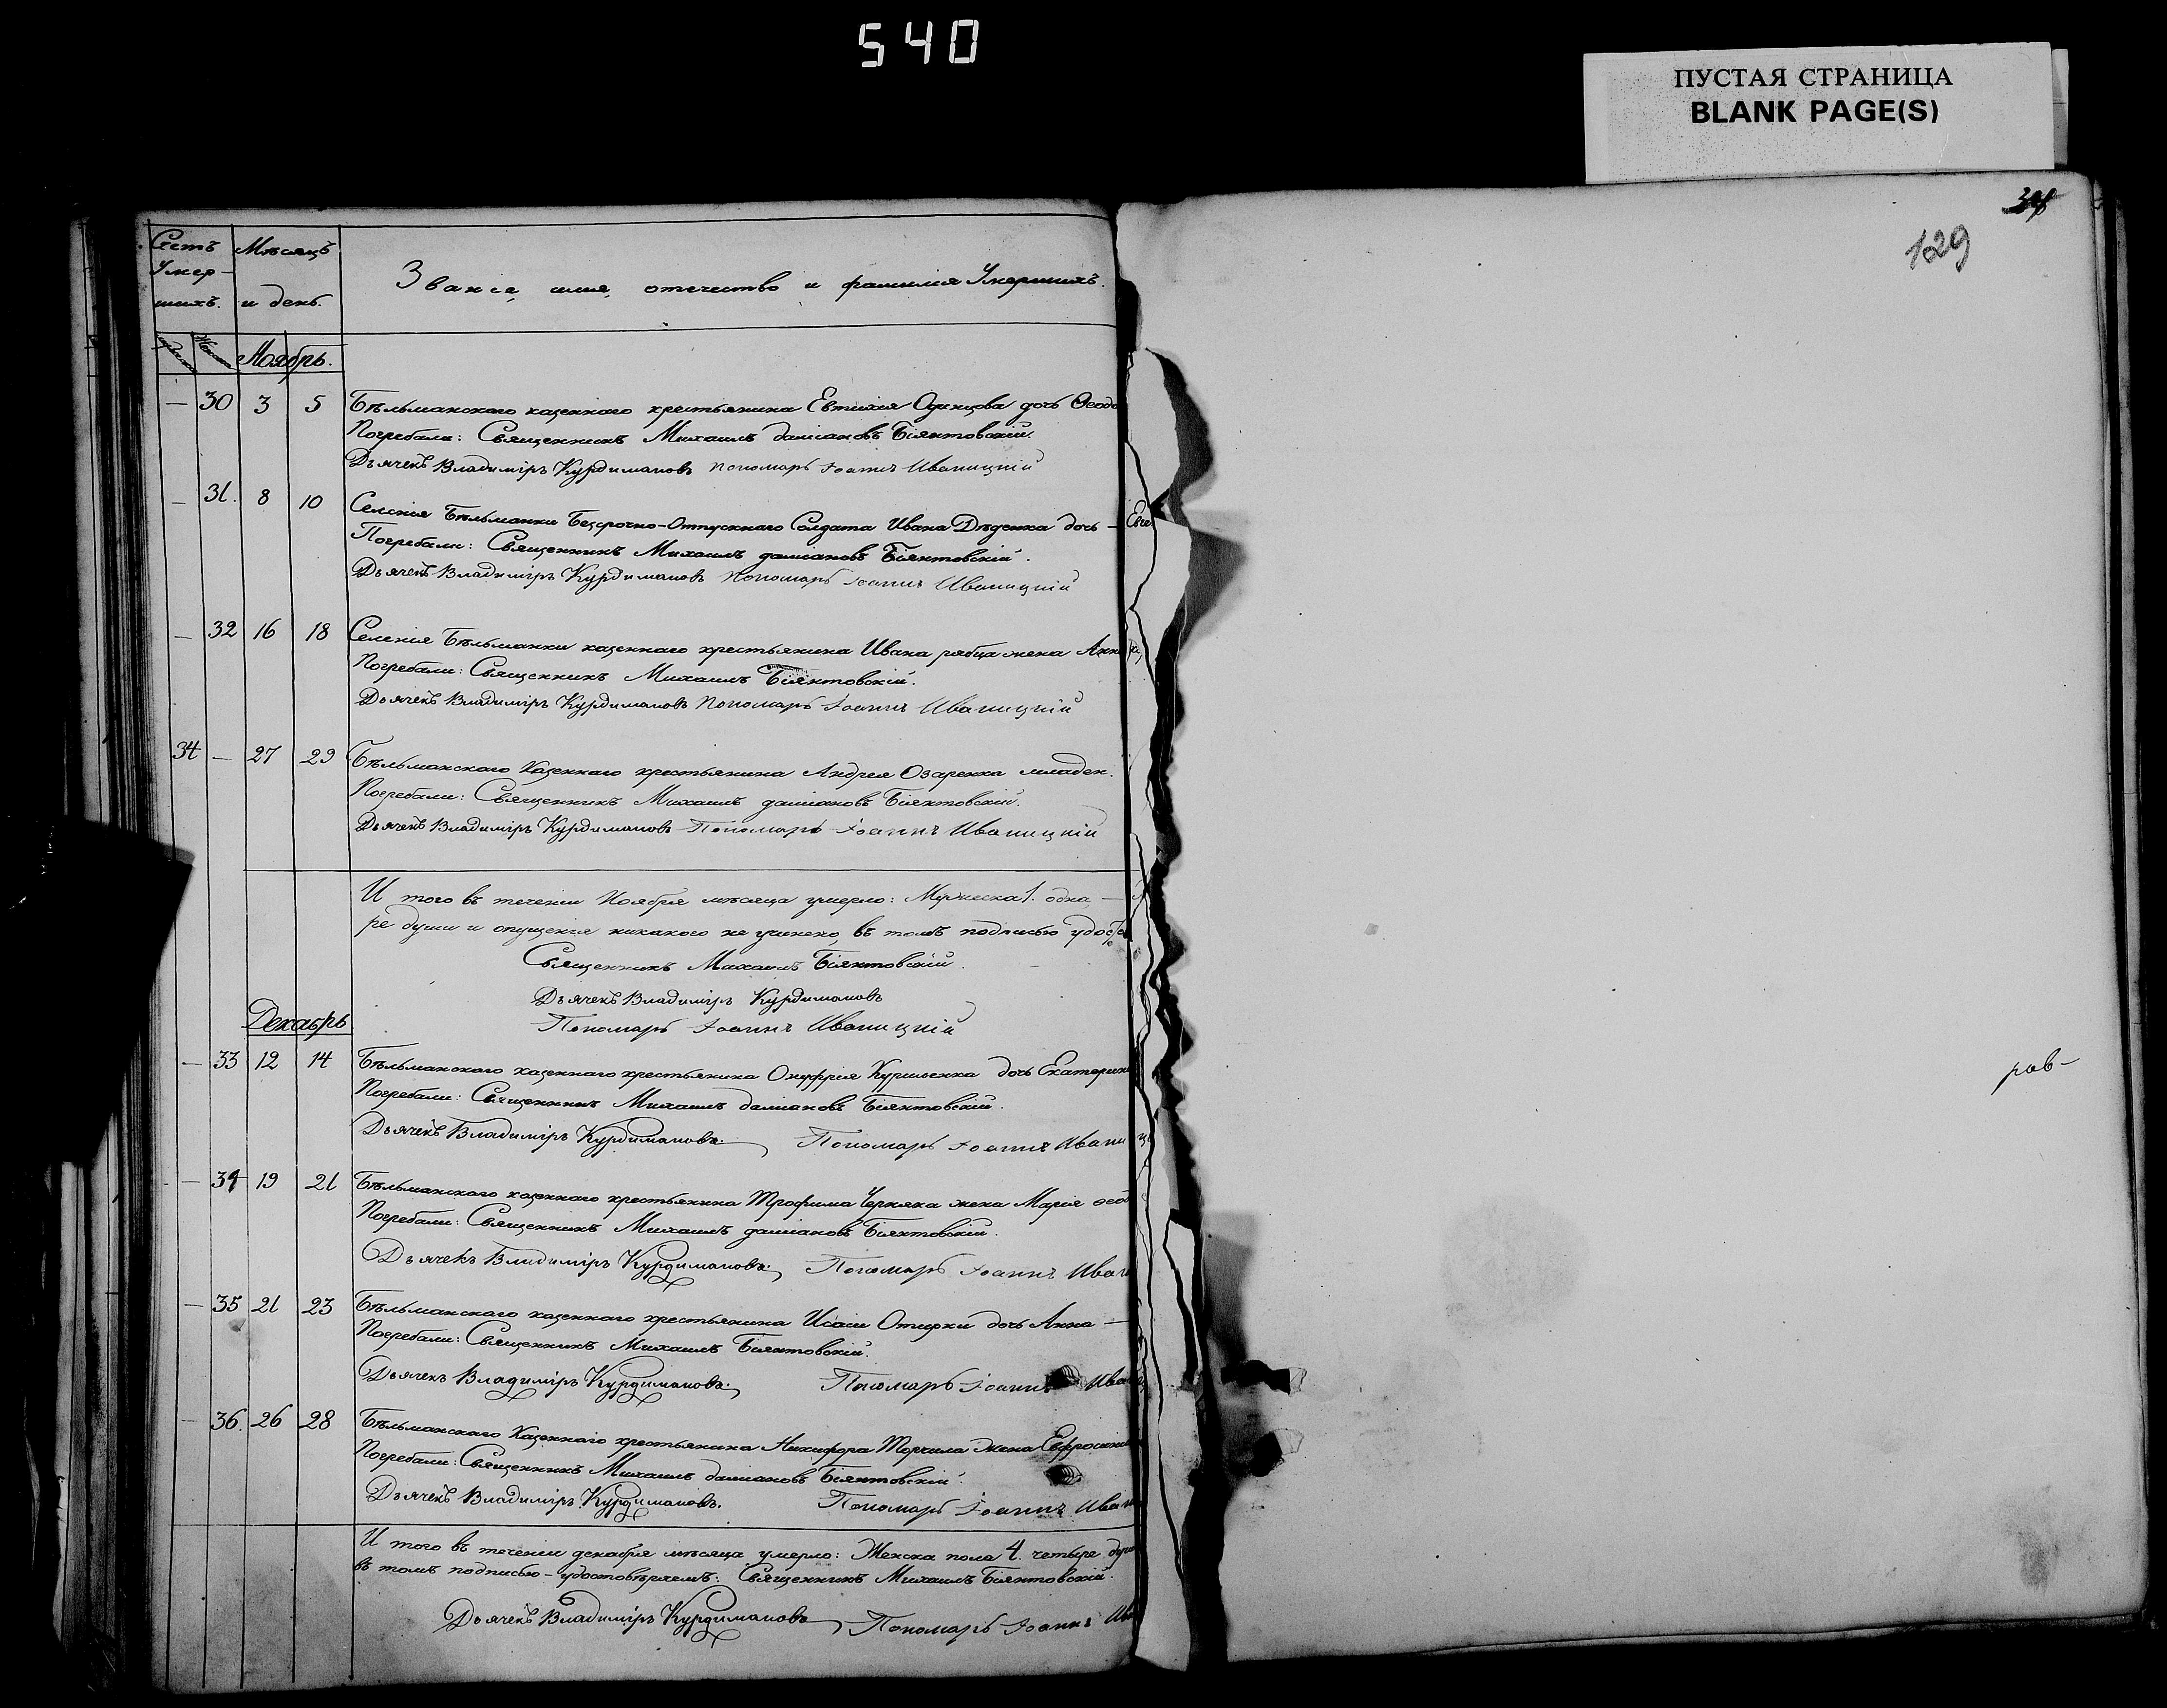 540
ПУСТАЯ СТРАНИЦА
BLANK PAGE(S)
129
Счетъ Умер-шихъ. Мѣсяцъ и день. Званіе, имя, отечество и фамилія Умершихъ.
Ноябрь.
— 30 3 5 Бѣльманскаго казеннаго крестьянина Евтихія Одинцова дочь Ѳеодо
Погребали: Священникъ Михаилъ даміановъ Біянтовскій.
Дьячекъ Владиміръ Курдимановъ Пономарь Іоаннъ Иваницкій
— 31. 8 10 Селенія Бѣльманки Безсрочно-Отпускнаго Солдата Ивана Дѣденка дочь — Евге
Погребали: Священникъ Михаилъ даміановъ Біянтовскій.
Дьячекъ Владиміръ Курдимановъ Пономарь Іоаннъ Иваницкій
— 32 16 18 Селенія Бѣльманки казеннаго крестьянина Ивана рябца жена Анн
Погребали: Священникъ Михаилъ Біянтовскій.
Дьячекъ Владиміръ Курдимановъ Пономарь Іоаннъ Иваницкій
34 — 27 29 Бѣльманскаго Казеннаго крестьянина Андрея Озаренка младен.
Погребали: Священникъ Михаилъ даміановъ Біянтовскій.
Дьячекъ Владиміръ Курдимановъ Пономарь Іоаннъ Иваницкій
И того въ теченіи Ноября мѣсяца умерло: Мужеска 1. одна, —
ре души и опущенія никакого не учинено, въ томъ подписью удосто
Священникъ Михаилъ Біянтовскій.
Дьячекъ Владиміръ Курдимановъ
Пономарь Іоаннъ Иваницкій
Декабрь
— 33 12 14 Бѣльманскаго казеннаго крестьянина Онуфрія Куриленка дочь Екатерин
Погребали: Священникъ Михаилъ даміановъ Біянтовскій.
Дьячекъ Владиміръ Курдимановъ. Пономарь Іоаннъ Иваниц
— 34 19 21 Бѣльманскаго казеннаго крестьянина Трофима Черняка жена Марія
Погребали: Священникъ Михаилъ даміановъ Біянтовскій.
Дьячекъ Владиміръ Курдимановъ. Пономарь Іоаннъ Иван
— 35 21 23 Бѣльманскаго казеннаго крестьянина Исаіи Отирки дочь Анна —
Погребали: Священникъ Михаилъ Біянтовскій.
Дьячекъ Владиміръ Курдимановъ. Пономарь Іоаннъ Ива
— 36. 26 28 Бѣльманскаго Казеннаго крестьянина Никифора Торчила жена Ефросині
Погребали: Священникъ Михаилъ даміановъ Біянтовскій.
Дьячекъ Владиміръ Курдимановъ. Пономарь Іоаннъ Иван
И того въ теченіи декабря мѣсяца умерло: Женска пола 4. четыре душ
въ томъ подписью-удостовѣряемъ: Священникъ Михаилъ Біянтовскій.
Дьячекъ Владиміръ Курдимановъ Пономарь Іоаннъ Ив
рав-